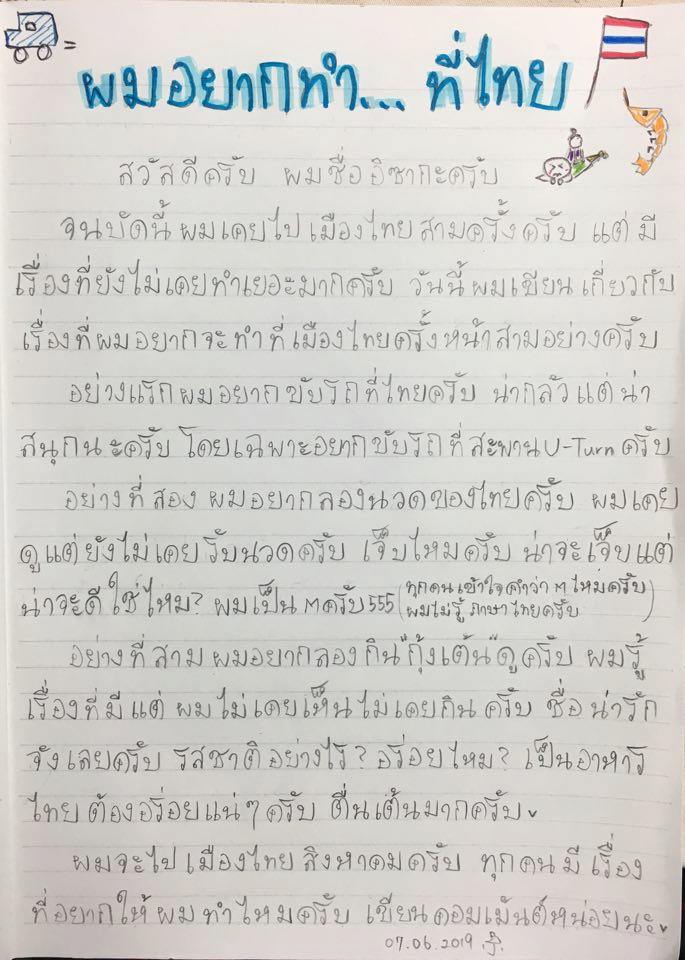 ผมอยากทำ... ที่ไทย
สวัสดีครับ ผมชื่ออิซากะครับ
จนบัดนี้ ผมเคยไปเมืองไทยสามครั้งครับ แต่มี
เรื่องที่ยังไม่เคยทำเยอะมากครับ วันนี้ผมเขียนเกี่ยวกับ
เรื่องที่ผมอยากจะทำที่เมืองไทยครั้งหน้าสามอย่างครับ
อย่างแรกผมอยากขับรถที่ไทยครับ น่ากลัวแต่น่า
สนุกนะครับ โดยเฉพาะอยากขับรถที่สะพานU-Turnครับ
อย่างที่สอง ผมอยากลองนวดของไทยครับ ผมเคย
ดูแต่ยังไม่เคยรับนวดครับ เจ็บไหมครับ น่าจะเจ็บแต่
น่าจะดีใช่ไหม? ผมเป็น mครับ555 (ทุกคนเข้าใจคำว่า m ไหมครับ
ผมไม่รู้ภาษาไทยครับ)
อย่างที่สาม ผมอยากลองกิน"กุ้งเต้น"ดูครับ ผมรู้
เรื่องที่มีแต่ผมไม่เคยเห็นไม่เคยกินครับ ชื่อน่ารัก
จังเลยครับ รสชาติอย่างไร? อร่อยไหม? เป็นอาหาร
ไทยต้องอร่อยแน่ๆครับ ตื่นเต้นมากครับ
ผมจะไปเมืองไทยสิงหาคมครับ ทุกคนมีเรื่อง
ที่อยากให้ผมทำไหมครับ เขียนคอมเม้นต์หน่อยนะ
07.06.2019